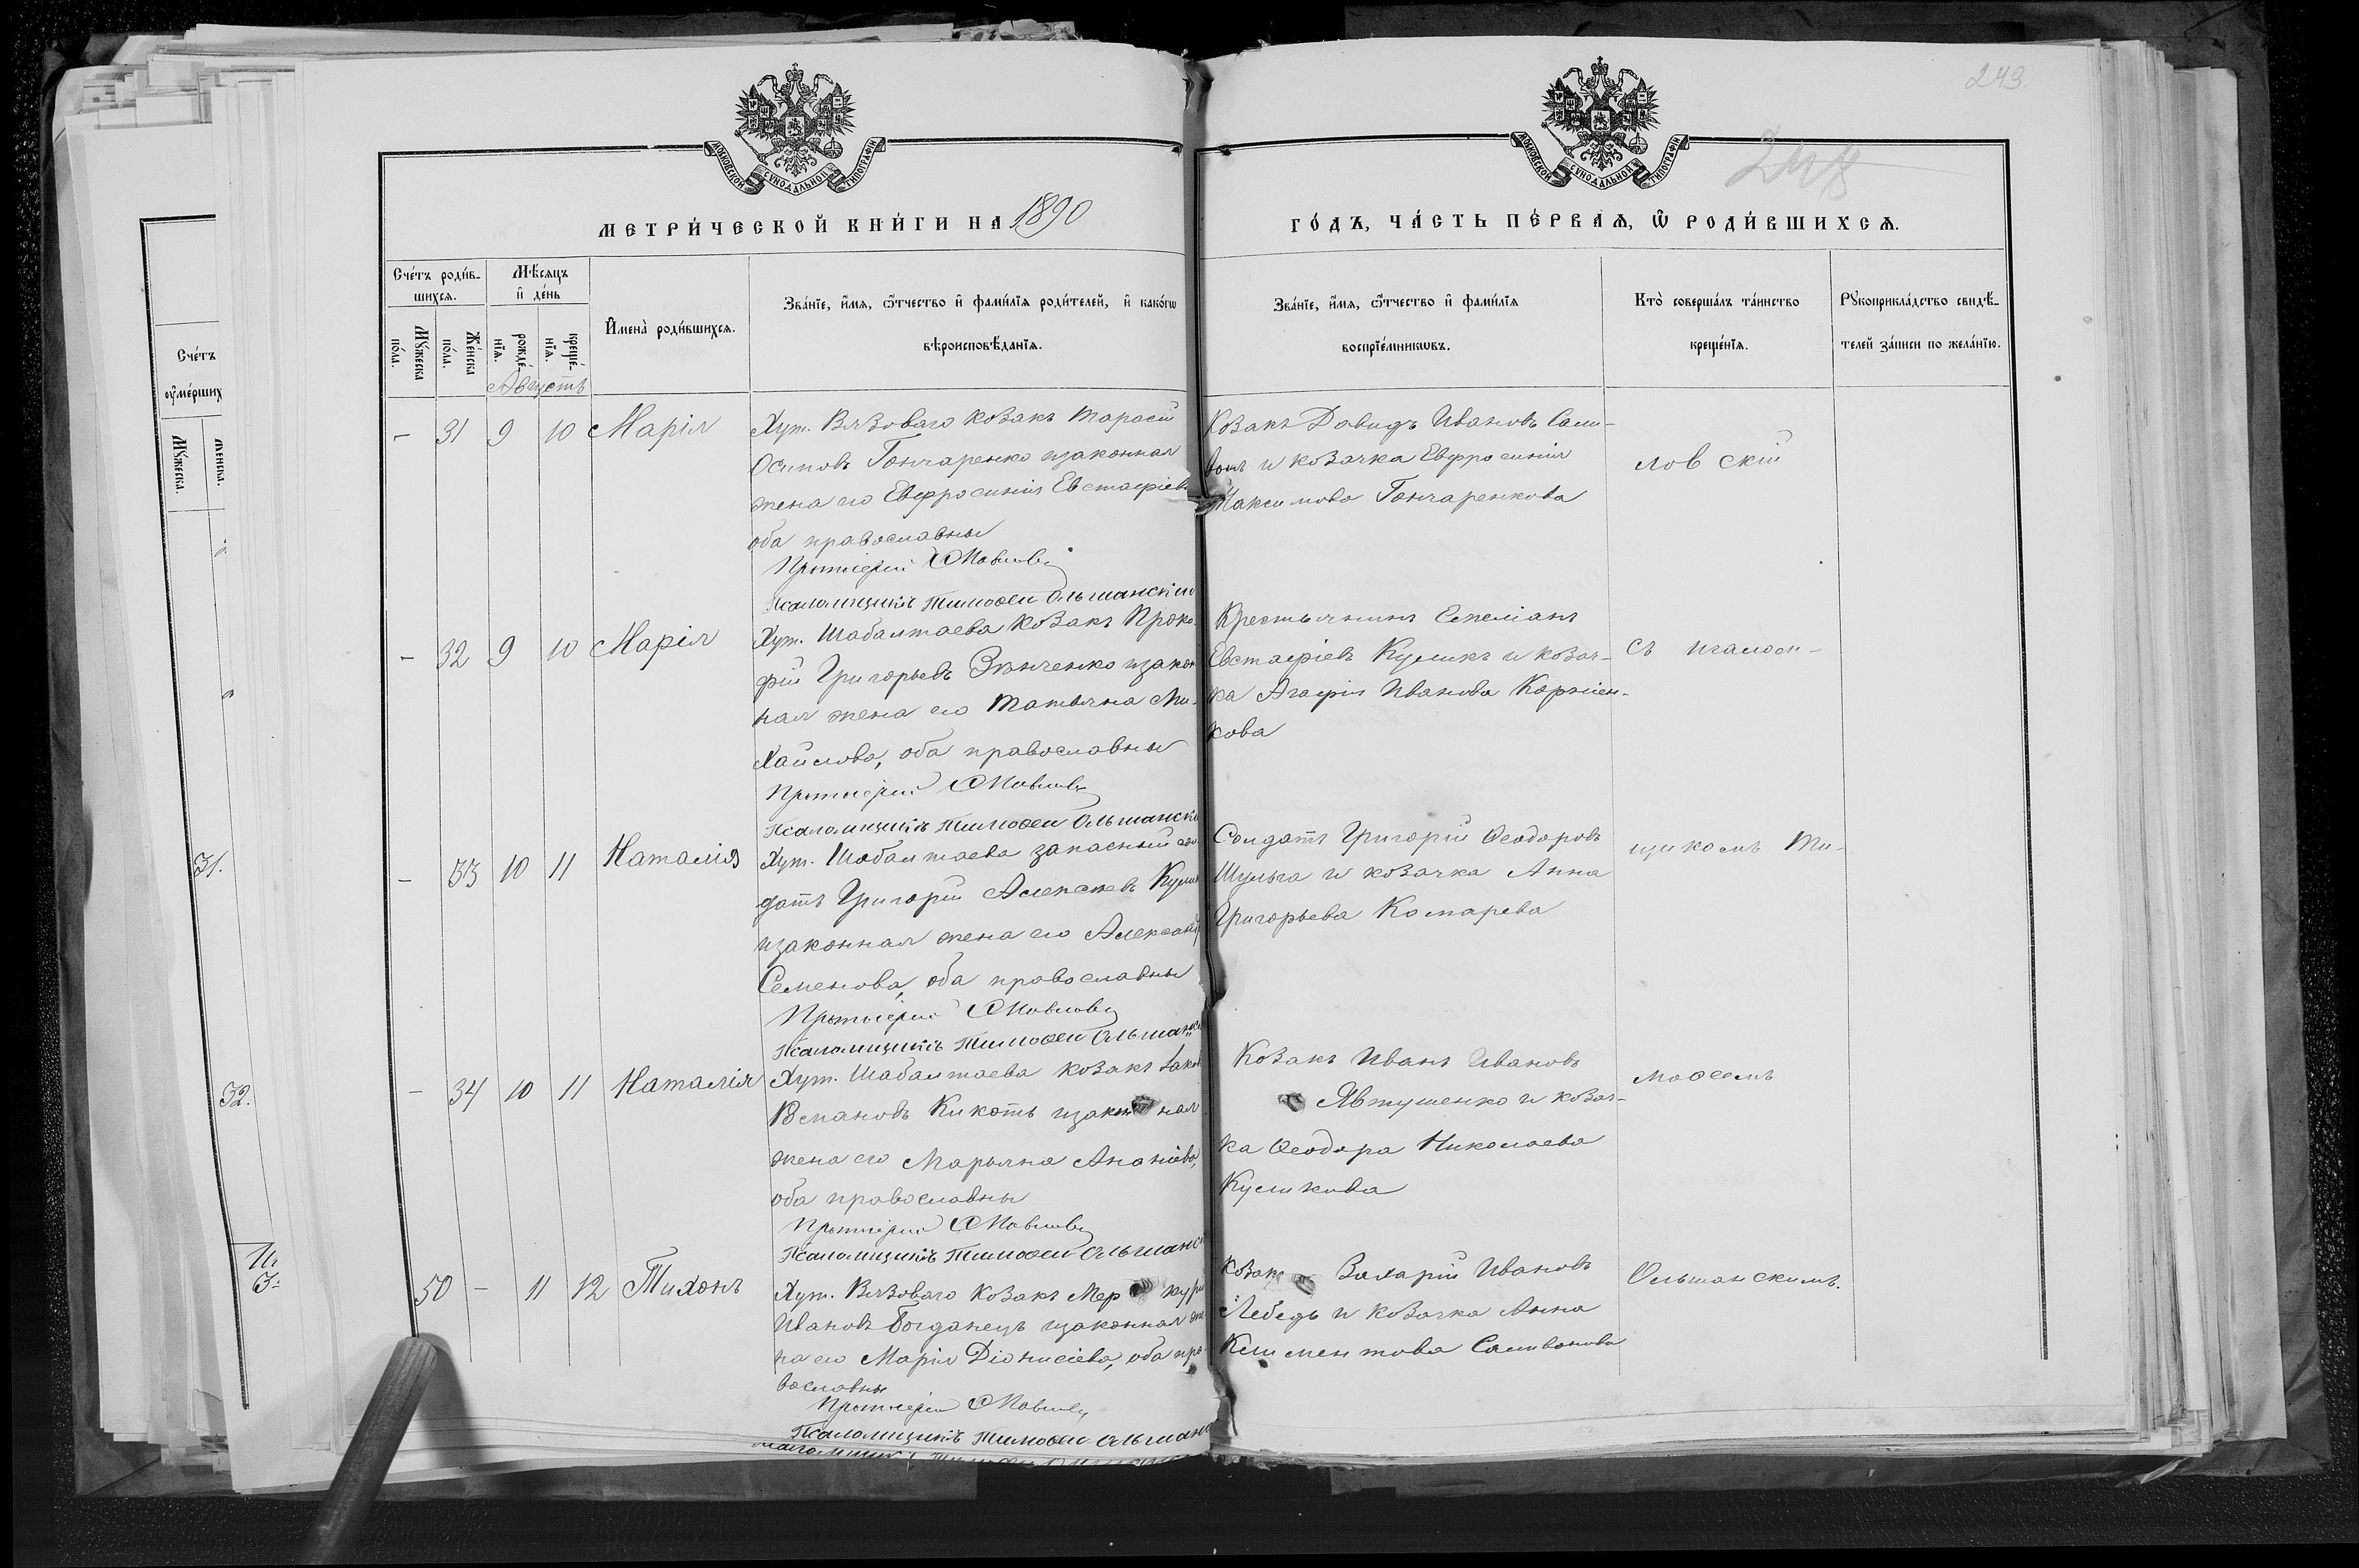 243
248
МОСКОВСКОЙ СѴНОДАЛЬНОЙ ТИПОГРАФІИ
МОСКОВСКОЙ СѴНОДАЛЬНОЙ ТИПОГРАФІИ
МЕТРИ́ЧЕСКОЙ КНИ́ГИ НА 1890
ГО́ДЪ, ЧА́СТЬ ПЕ́РВАѦ, Ѡ҆ РОДИ́ВШИХСѦ.
Сче́тъ роди́в-
шихсѧ.
Мѣ́сѧцъ
и҆ де́нь
Мꙋ́жеска
по́ла.
Же́нска
по́ла.
рожде́-
нїѧ.
креще́-
нїѧ.
И҆мена̀ роди́вшихсѧ.
Зва́нїе, и҆́мѧ, ѻ҆́тчество и҆ фами́лїѧ роди́телей, и҆ како́гѡ
вѣроисповѣ́данїѧ.
Зва́нїе, и҆́мѧ, ѻ҆́тчество и҆ фами́лїѧ
воспрїе́мникѡвъ.
Кто̀ соверша́лъ та́инство
креще́нїѧ.
Рꙋкоприкла́дство свидѣ́-
телей за́писи по жела́нїю.
Августъ
– 31 9 10 Марія
Хут. Вязоваго козакъ Тарасій
Осиповъ Гончаренко и законная
жена его Евфросинія Евстафіева
оба православны
Протоіерей
Псаломщикъ Тимоѳей Ольшанскій
Козакъ Давидъ Ивановъ Сали-
вонъ и козачка Евфросинія
Максимова Гончаренкова
ловскій
– 32 9 10 Марія
Хут. Шабалтаева козакъ Проко-
фій Григорьевъ Зѣнченко и закон
ная жена его Татьяна Ми-
хайлова, оба православны
Протоіерей
Псаломщикъ Тимоѳей Ольшански
Крестьянинъ Емеліанъ
Евстафіевъ Куликъ и козач-
ка Агафія Ивановa Корніен-
кова
съ псалом-
– 33 10 11 Наталія
Хут. Шабалтаева запасный сол
датъ Григорій Алексѣевъ Кули
и законная жена его Александ
Семенова, оба православны
Протоіерей
Псаломщикъ Тимоѳей Ольшанск
Солдатъ Григорій Ѳеодоровъ
Шульга и козачка Анна
Григорьева Комарева
щикомъ Ти-
– 34 10 11 Наталія
Хут. Шабалтаева козакъ Іаков
Кикоть и законная
жена его Марьяна Ананіева,
оба православны
Протоіерей
Псаломщикъ Тимоѳей Ольшанс
Козакъ Иванъ Ивановъ
Явтушенко и козач-
ка Ѳеодора Николаева
Куликова
моѳеемъ
50 – 11 12 Тихонъ
Хут. Вязоваго козакъ Меркурій
Ивановъ Богданецъ и законная же
на его Марія Діонисіева, оба пра
вославны
Протоіерей
Псаломщикъ Тимоѳей Ольшанс
Козакъ Захарій Ивановъ
Лебедь и козачка Анна
Климентова Саливонова
Ольшанскимъ.
Сче́тъ
ᲂу҆ме́рших
Мꙋ́жеска.
31.
32.